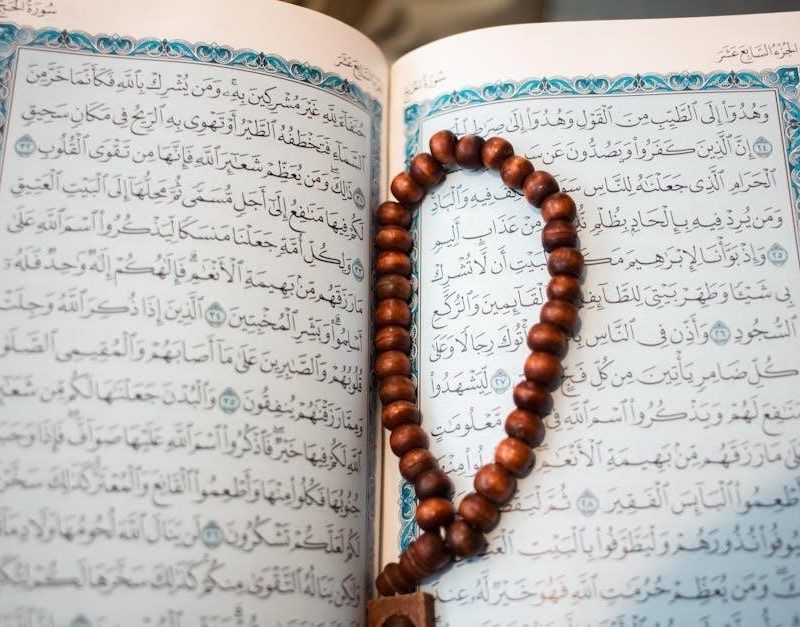 الجُزْءُ السَّابِعَ عَشَرَ
سُورَةُ الحَجِّ
وَهُدُوٓاْ إِلَى ٱلطَّيِّبِ مِنَ ٱلْقَوْلِ وَهُدُوٓاْ إِلَىٰ صِرَٰطِ
٢٤ إِنَّ ٱلَّذِينَ كَفَرُواْ وَيَصُدُّونَ عَن
ٱلْحَرَامِ ٱلَّذِى جَعَلْنَٰهُ لِلنَّاسِ فِيهِ وَٱلْبَادِ
وَمَن يُرِدْ فِيهِ بِإِلْحَادٍۭ بِظُلْمٍ مِنْ عَذَابٍ أَلِيمٍ
٢٥ وَإِذْ بَوَّأْنَا لِإِبْرَٰهِيمَ ٱلْبَيْتِ أَن لَّا تُشْرِكْ
بِى شَيْـًٔا وَطَهِّرْ بَيْتِىَ لِلطَّآئِفِينَ وَٱلْقَآئِمِينَ وَٱلرُّكَّعِ
ٱلسُّجُودِ ٢٦ وَأَذِّن فِى ٱلنَّاسِ يَأْتُوكَ رِجَالًا وَعَلَىٰ
كُلِّ ضَامِرٍ يَأْتِينَ مِن كُلِّ فَجٍّ ٢٧ لِّيَشْهَدُواْ
مَنَٰفِعَ لَهُمْ وَيَذْكُرُواْ ٱسْمَ ٱللَّهِ فِىٓ مَّعْلُومَٰتٍ
عَلَىٰ مَا رَزَقَهُم مِّنۢ بَهِيمَةِ ٱلْأَنْعَٰمِ مِنْهَا
وَأَطْعِمُواْ ٱلْبَآئِسَ ٱلْفَقِيرَ ٢٨ ثُمَّ لْيَقْضُواْ
وَلْيُوفُواْ نُذُورَهُمْ وَلْيَطَّوَّفُواْ بِٱلْبَيْتِ
ذَٰلِكَ وَمَن يُعَظِّمْ حُرُمَٰتِ ٱللَّهِ فَهُوَ خَيْرٌ لَّهُۥ عِندَ
الجُزْءُ السَّابِعَ عَشَرَ
سُورَةُ الحَجِّ
حُنَفَآءَ لِلَّهِ غَيْرَ مُشْرِكِينَ بِهِۦ وَمَن يُشْرِكْ بِٱللَّهِ فَكَأَنَّمَا خَرَّ مِنَ
ٱلسَّمَآءِ فَتَخْطَفُهُ ٱلطَّيْرُ أَوْ تَهْوِى بِهِ ٱلرِّيحُ فِى مَكَانٍ سَحِيقٍ
٣١ ذَٰلِكَ وَمَن يُعَظِّمْ شَعَٰٓئِرَ ٱللَّهِ فَإِنَّهَا مِن تَقْوَى ٱلْقُلُوبِ ٣٢
لَكُمْ فِيهَا مَنَٰفِعُ إِلَىٰٓ أَجَلٍ مُّسَمًّى ثُمَّ مَحِلُّهَآ إِلَى ٱلْبَيْتِ ٱلْعَتِيقِ
٣٣ وَلِكُلِّ أُمَّةٍ جَعَلْنَا مَنسَكًا لِّيَذْكُرُواْ ٱسْمَ ٱللَّهِ عَلَىٰ
مَا رَزَقَهُم مِّنۢ بَهِيمَةِ ٱلْأَنْعَٰمِ فَإِلَٰهُكُمْ إِلَٰهٌ وَٰحِدٌ فَلَهُۥٓ
أَسْلِمُواْ وَبَشِّرِ ٱلْمُخْبِتِينَ ٣٤ ٱلَّذِينَ إِذَا ذُكِرَ ٱللَّهُ وَجِلَتْ
قُلُوبُهُمْ وَٱلصَّٰبِرِينَ عَلَىٰ مَآ أَصَابَهُمْ وَٱلْمُقِيمِى ٱلصَّلَوٰةِ
وَمِمَّا رَزَقْنَٰهُمْ يُنفِقُونَ ٣٥ وَٱلْبُدْنَ جَعَلْنَٰهَا لَكُم مِّن
ٱللَّهِ لَكُمْ فِيهَا خَيْرٌ فَٱذْكُرُواْ ٱسْمَ ٱللَّهِ عَلَيْهَا صَوَآفَّ فَإِذَا
جُنُوبُهَا فَكُلُواْ مِنْهَا وَأَطْعِمُواْ ٱلْقَانِعَ وَٱلْمُعْتَرَّ كَذَٰلِكَ
لَكُمْ لَعَلَّكُمْ تَشْكُرُونَ ٣٦ لَن يَنَالَ ٱللَّهَ لُحُومُهَا وَلَا
وَلَٰكِن يَنَالُهُ ٱلتَّقْوَىٰ مِنكُمْ كَذَٰلِكَ سَخَّرَهَا لَكُمْ